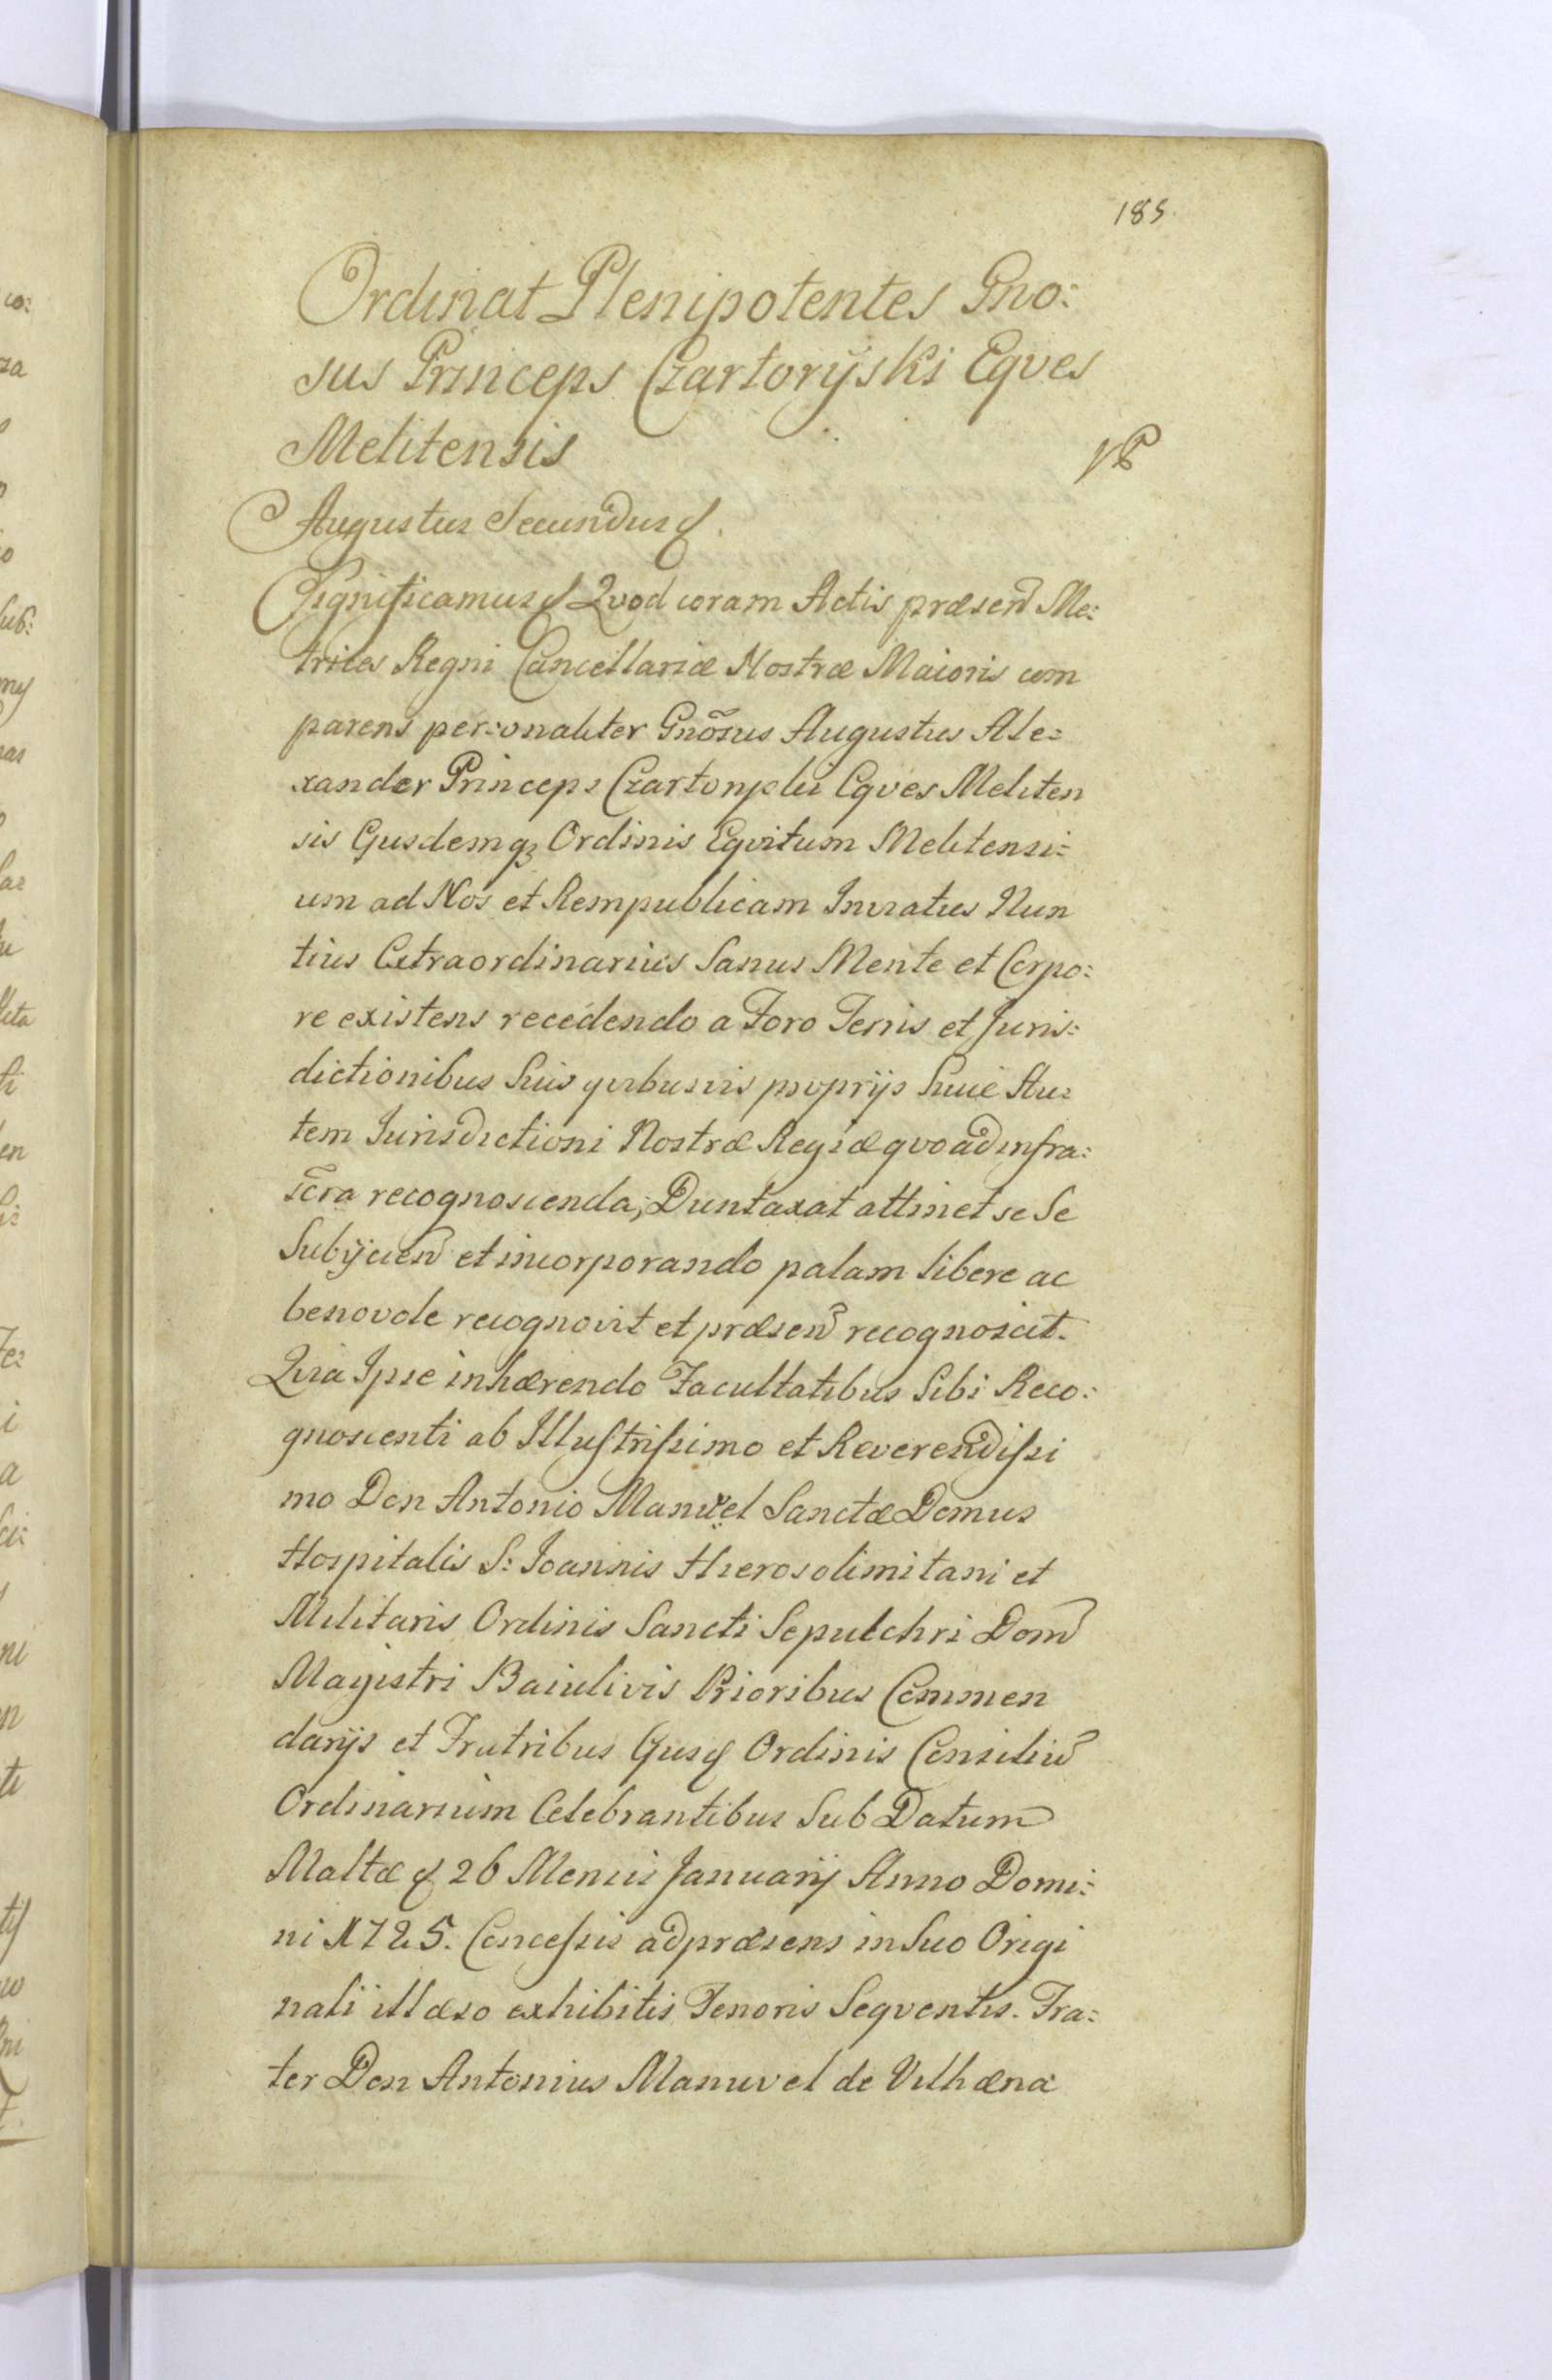 185.
Ordinat Plenipotentes Gno:
sus Princeps Czartoryski Eqves
Melitensis
Augustus Secundus &.
Significamus & Qvod coram Actis præsen Me:
trices Regni Cancellariæ Nostræ Maioris com
parens personaliter Gnõsus Augustus Ale:
xander Princeps Czartoryski Eqves Meliten
sis Ejusdemq3 Ordinis Eqvitum Melitensi:
um ad Nos et Rempublicam Iniratus Nun
tius Extraordinarius Sanus Mente et Corpo:
re existens recedendo a Foro Terris et Juris:
dictionibus Suis qvibusvis proprijs Huic Au:
tem Jurisdictioni Nostræ Regiæ qvo ad infra:
scra recognoscenda, Duntaxat attinet se Se
Subijcien et incorporando palam libere ac
benovole recognovit et præsen recognoscit.
Qvia Ipse inhærendo Facultatibus Sibi Reco:
gnoscenti ab Illustrissimo et Reverendissi
mo Don Antonio Manuel Sanctæ Domus
Hospitalis S: Joannis Hierosolimitani et
Militaris Ordinis Sancti Sepulchri Dom
Magistri Baiulivis Prioribus Commen
darijs et Fratribus Ejus& Ordinis Consiliu
Ordinarium Celebrantibus Sub Datum
Maltæ & 26 Mensis Januarij Anno Domi:
ni 1725. Concessis ad præsens in Suo Origi
nali illæso exhibitis Tenoris Seqventis. Fra:
ter Don Antonius Manuvel de Vilhæna